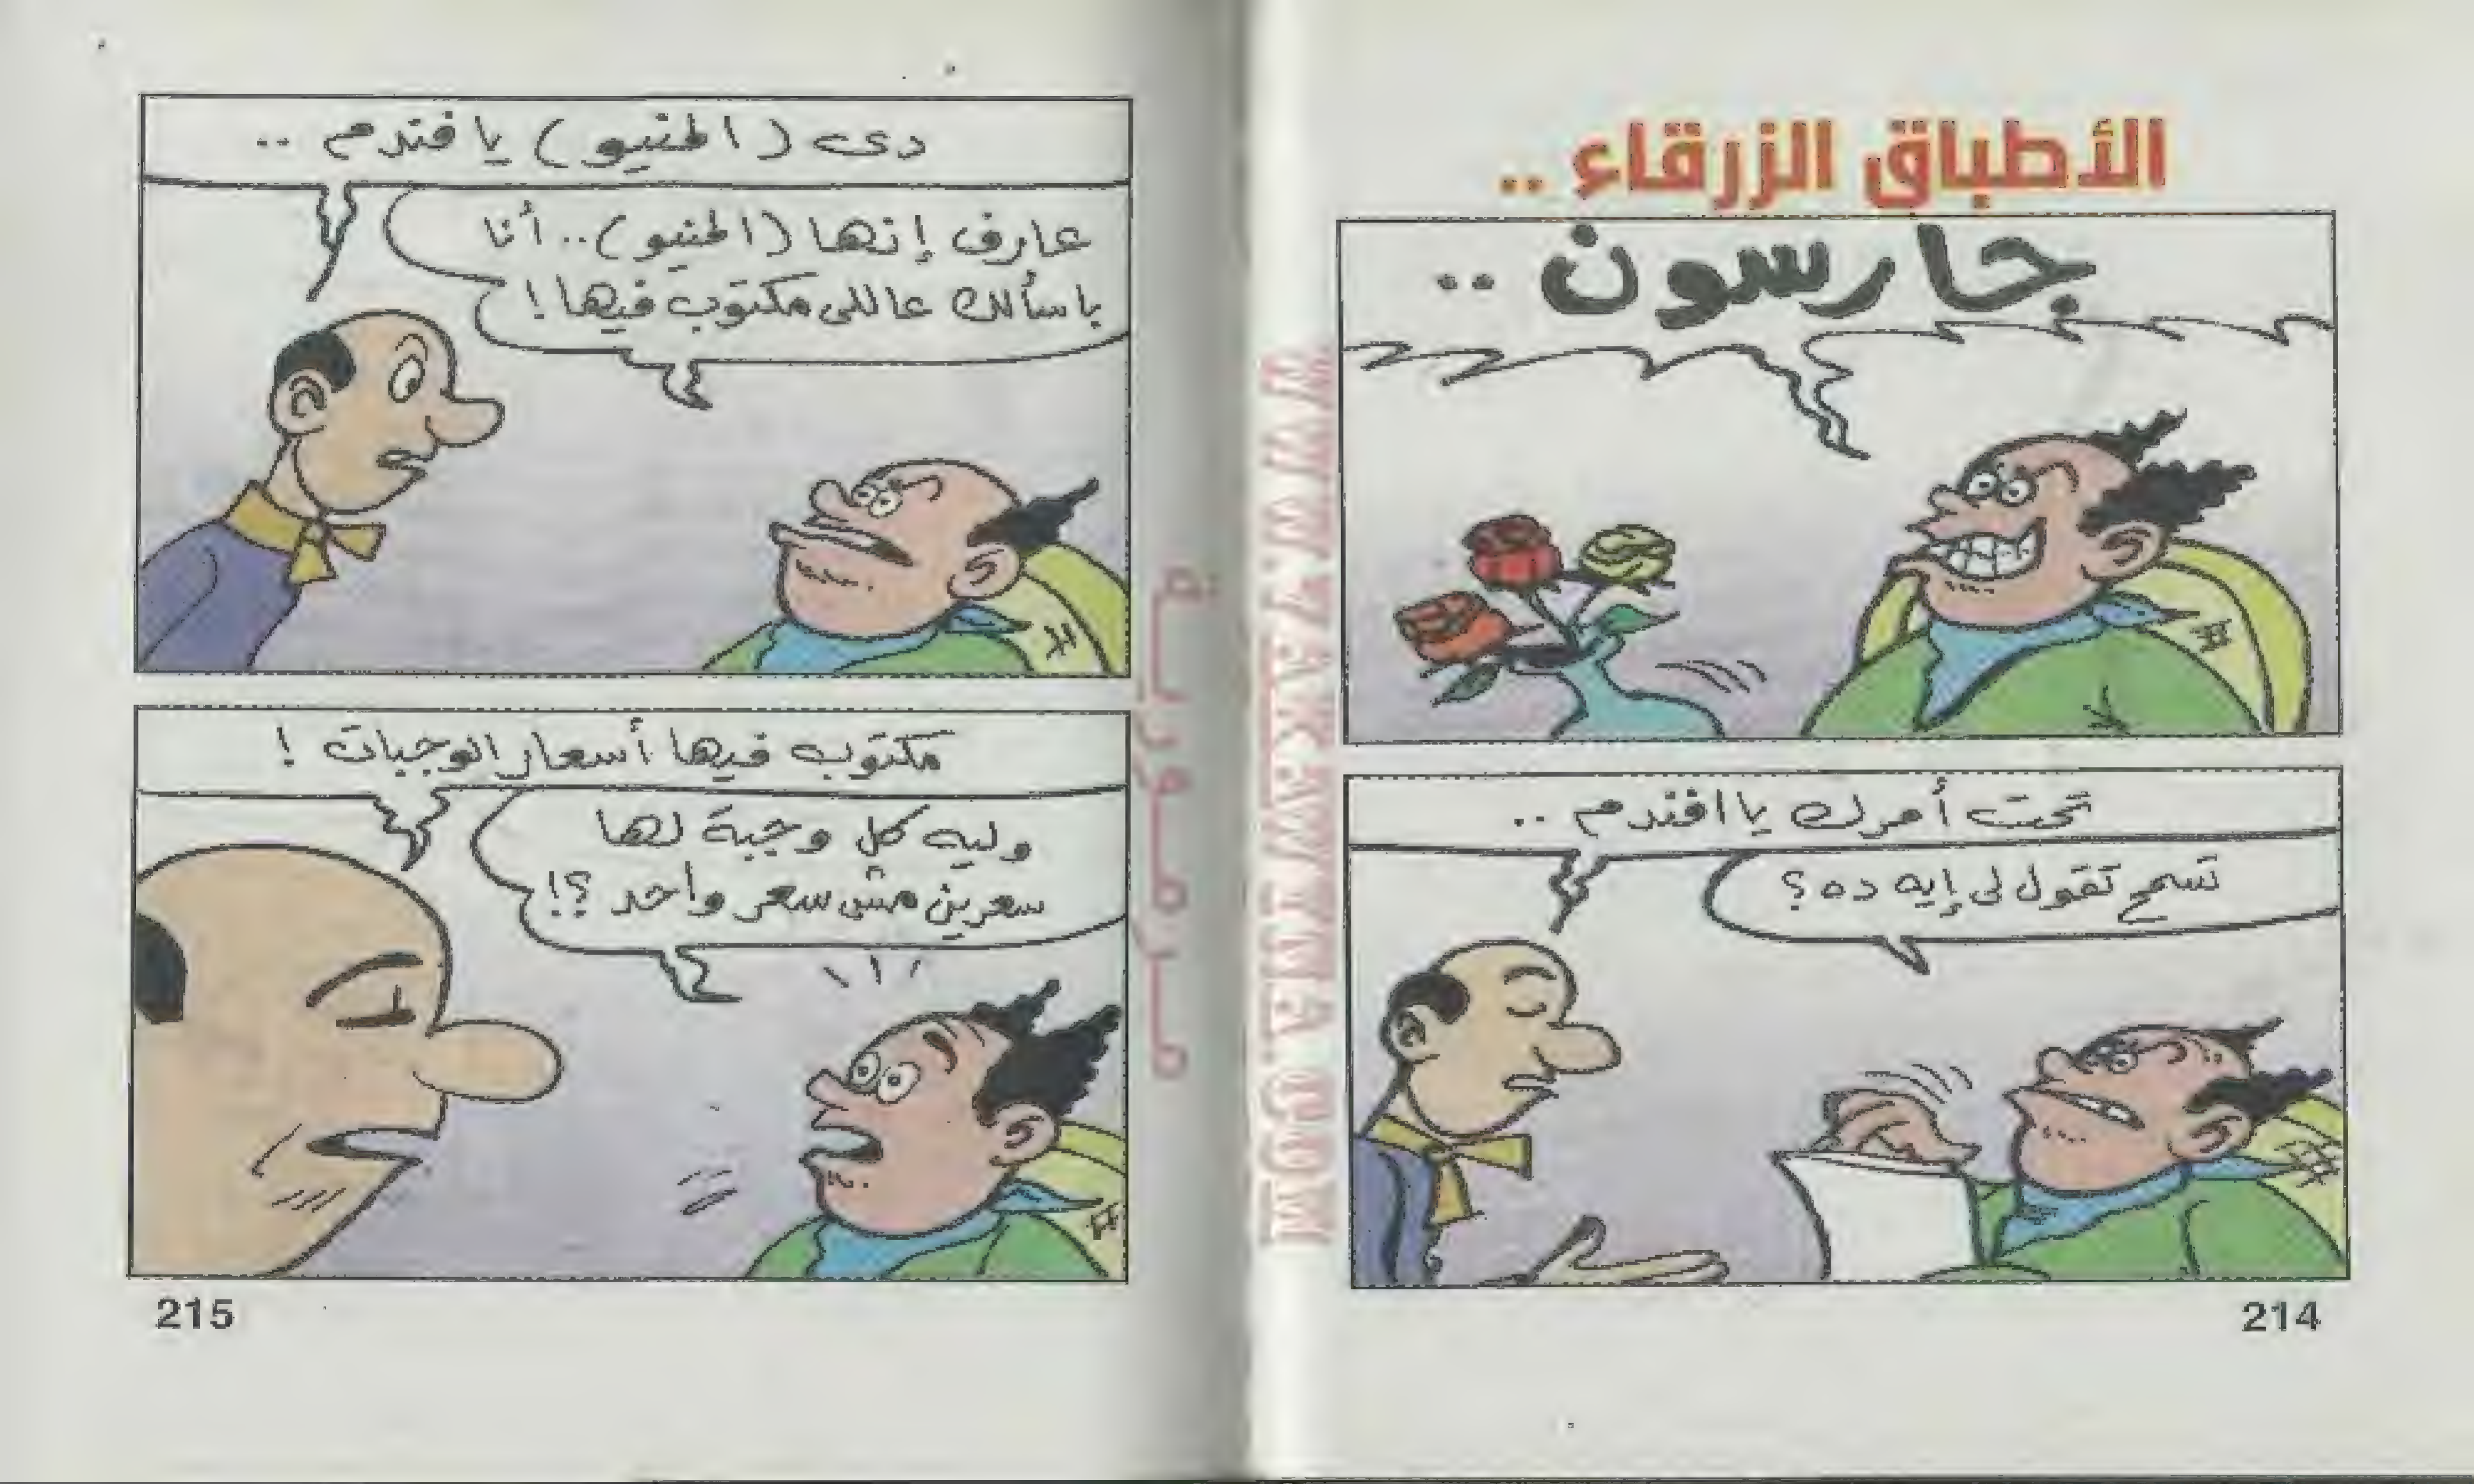 الأطباق الزرقاء ..
جارسون ..
تحت أمرك يا افندم ..
تسمح تقول لى إيه ده ؟
214
دى (المنيو) يا فندم ..
عارف إنها (المنيو) .. أنا
باسألك عاللى مكتوب فيها !
مكتوب فيها أسعار الوجبات !
وليه كل وجبة لها
سعرين مش سعر واحد ؟!
215
مرمورية